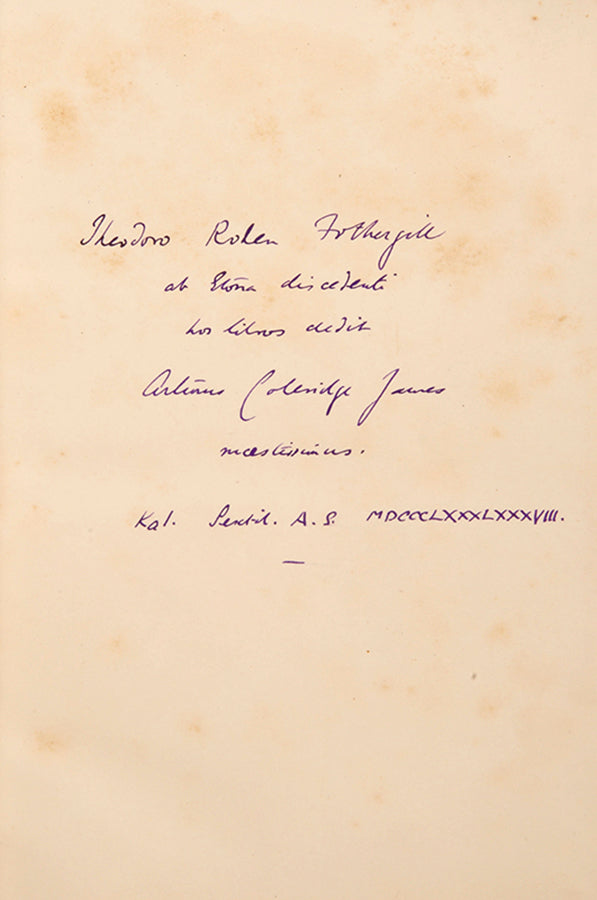 Theodoro Rohen Fothergill
ab Etōna discedenti
hos libros dedit
Arturus Coleridge James
mæstissimus.
Kal. Sextil. A.S. MDCCCLXXXLXXXVIII.